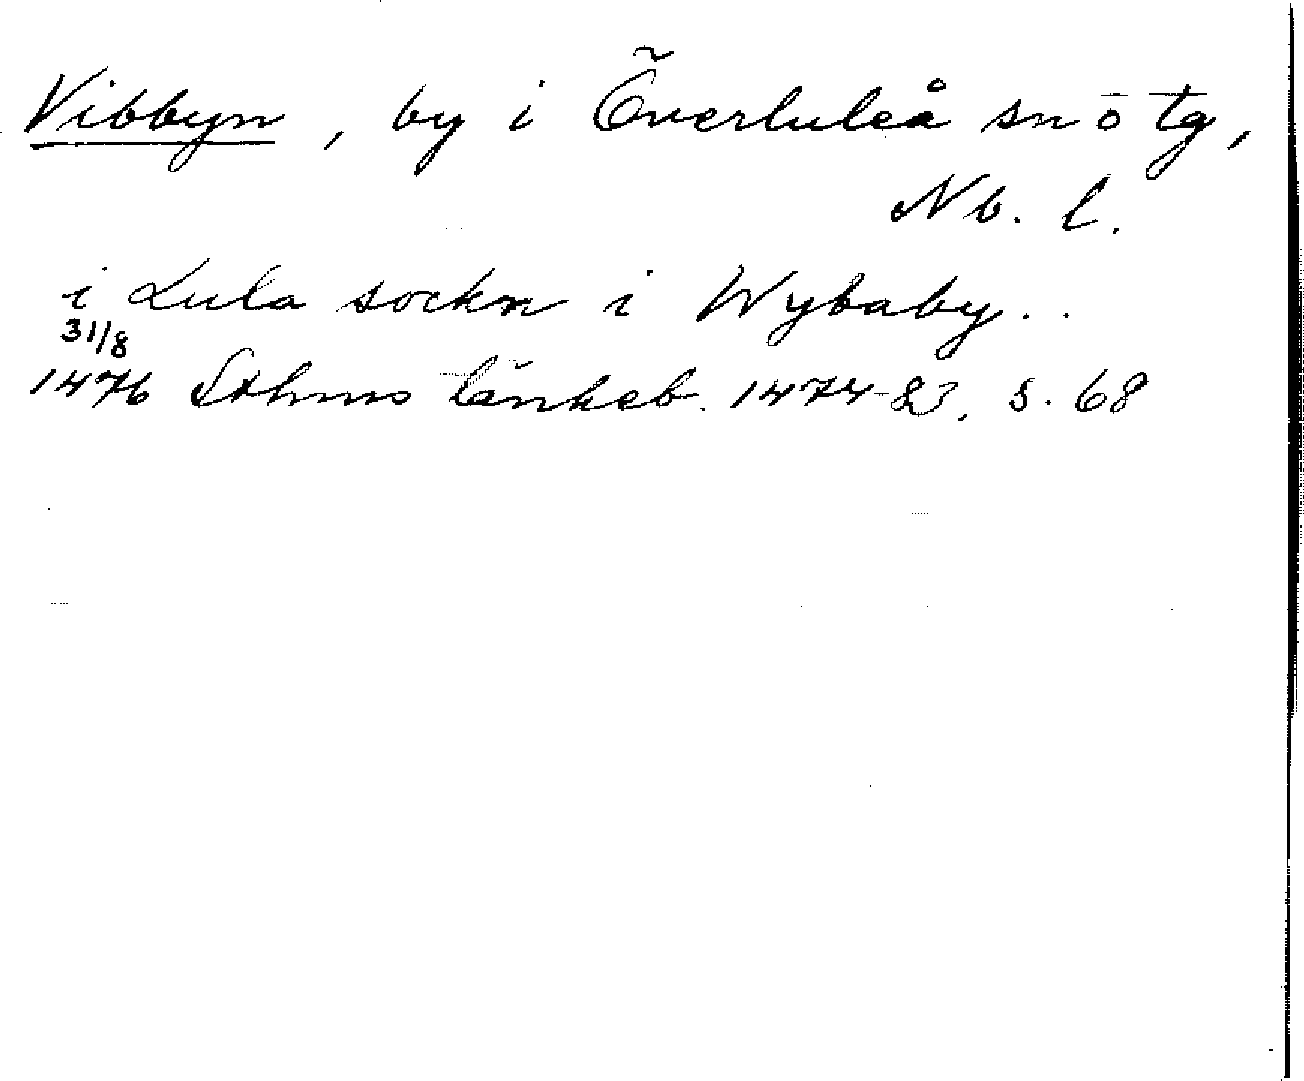 Vibbyn, by i Överluleå sn ō tg,
Nb. l.
i Lula sockn i Wybaby..
31/8
1476 Sthms tänkeb. 1474-83, s. 68